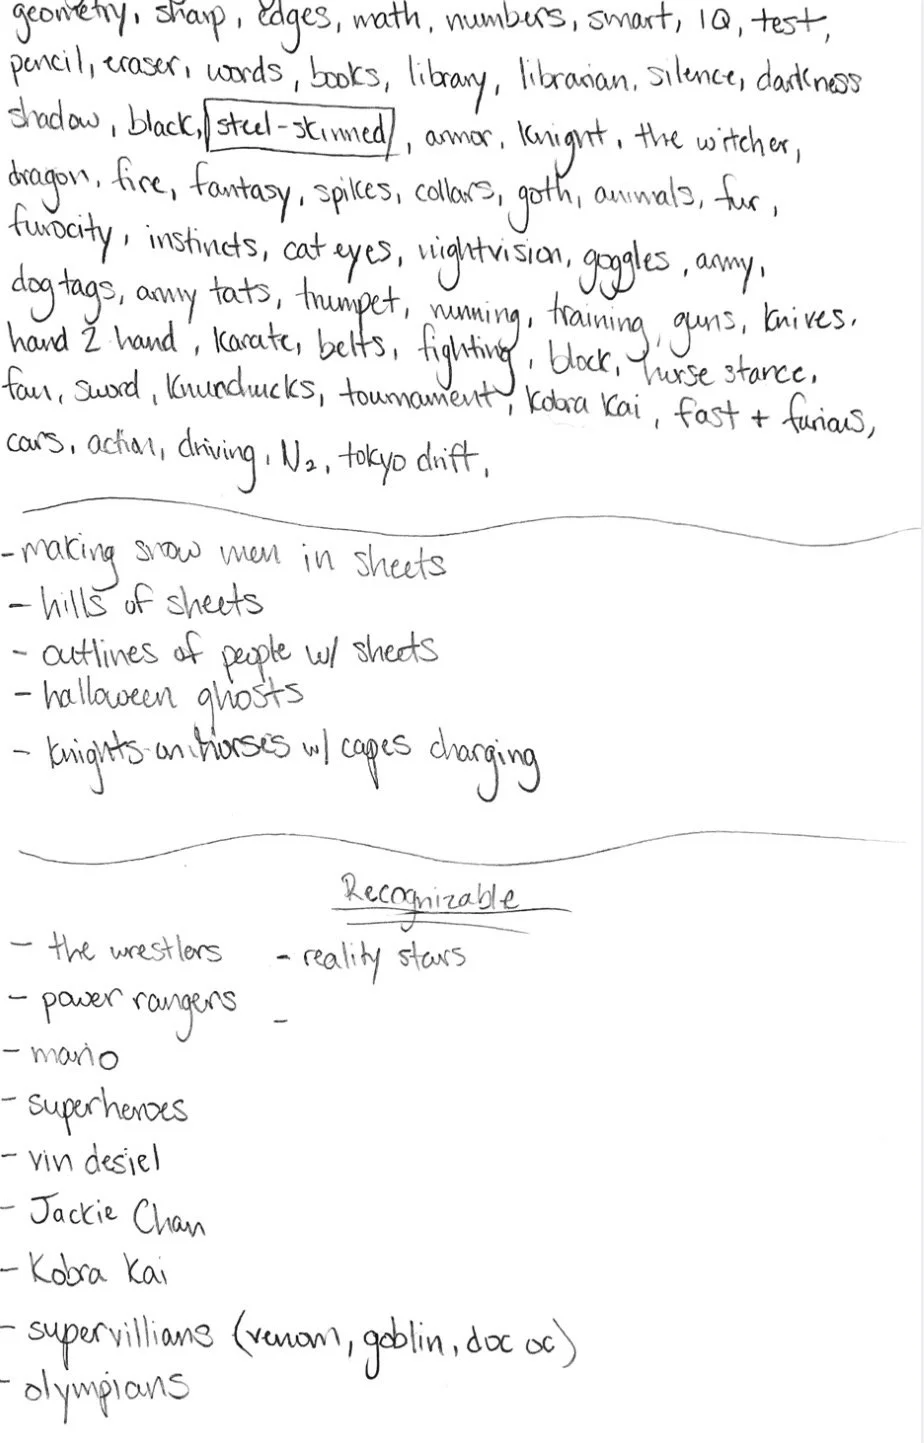 geometry, sharp, edges, math, numbers, smart, IQ, test,
pencil, eraser, words, books, library, librarian, silence, darkness
shadow, black, steel-skinned, armor, knight, the witcher,
dragon, fire, fantasy, spikes, collars, goth, animals, fur,
furocity, instincts, cat eyes, nightvision, goggles, army,
dog tags, army tats, trumpet, running, training, guns, knives,
hand 2 hand, karate, belts, fighting, block, horse stance,
fan, sword, knunchucks, tournament, kobra kai, fast + furious,
cars, action, driving, N2, tokyo drift,
- making snow men in sheets
- hills of sheets
- outlines of people w/ sheets
- halloween ghosts
- knights on horses w/ capes charging
Recognizable
- the wrestlers - reality stars
- power rangers -
- mario
- superheroes
- vin desiel
- Jackie Chan
- Kobra Kai
- supervillians (venom, goblin, doc oc)
- olympians